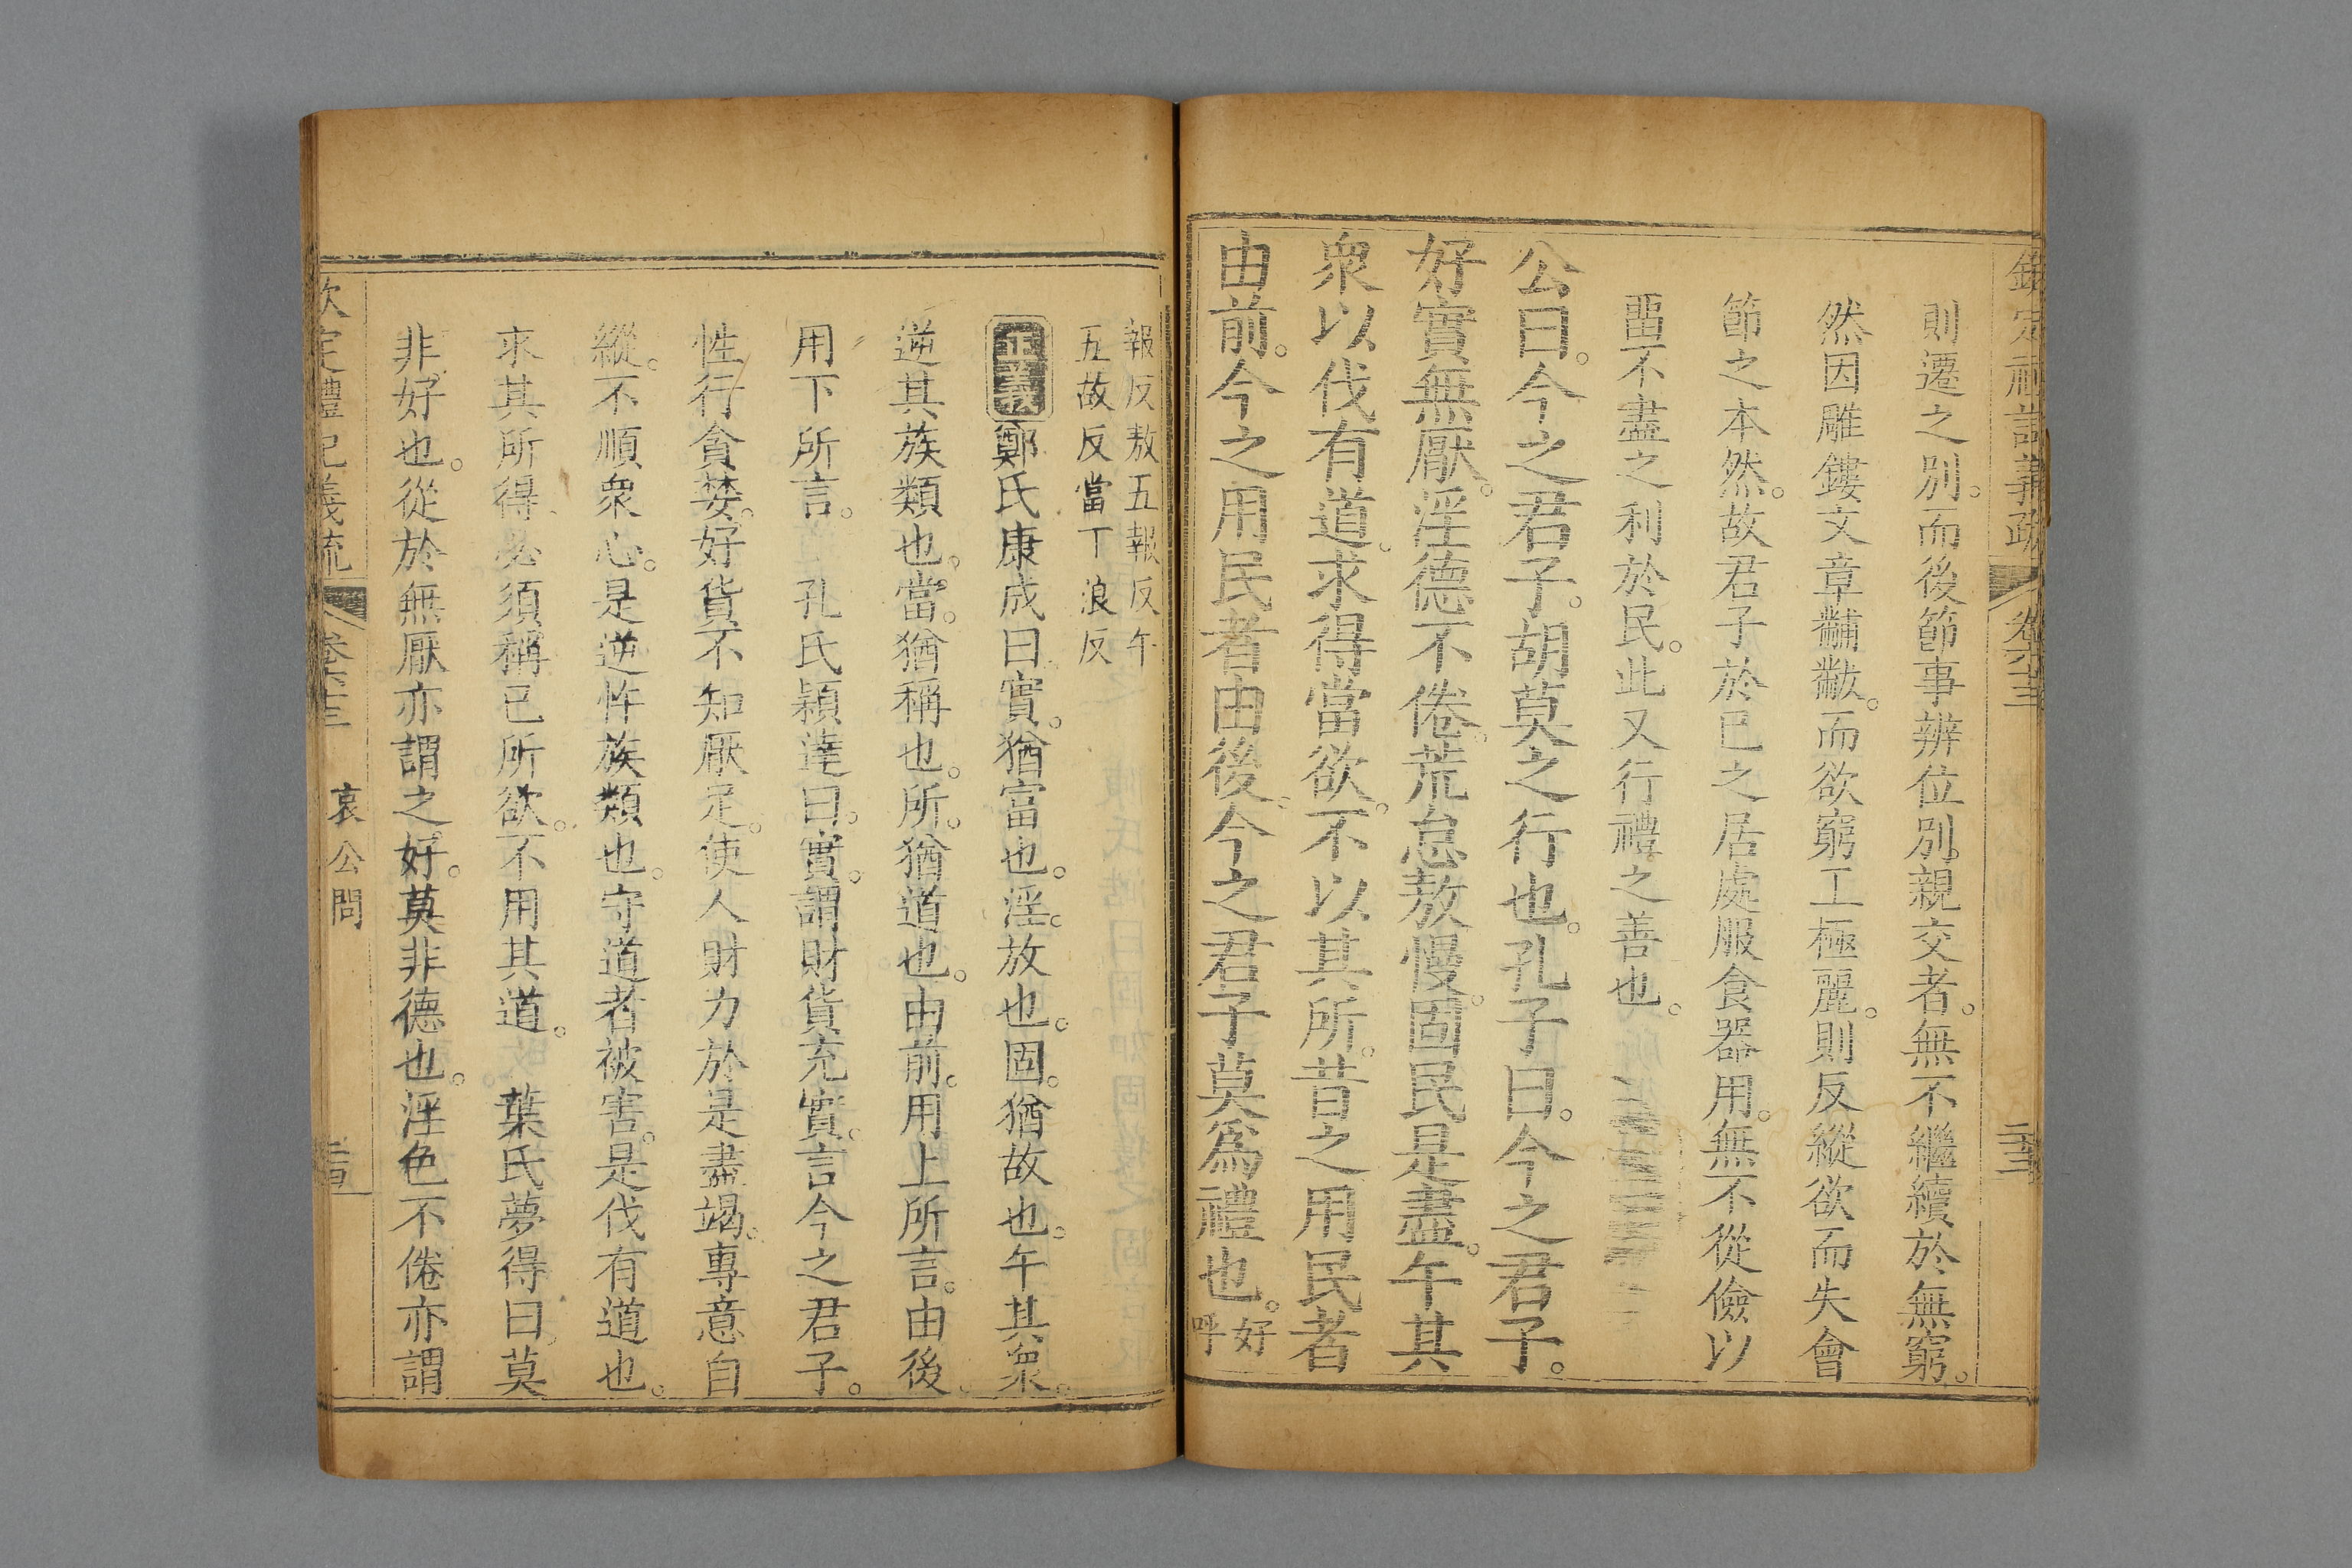 則遷之別。而後節事辨位別。親交者。無不繼續於無窮。
然因雕鏤文章黼黻。而欲窮工極麗。則反縱欲而失會
節之本然。故君子於巳之居處服食器用。無不從儉以
畱不盡之利於民。此又行禮之善也。
公曰。今之君子。胡莫之行也。孔子曰。今之君子。
好實無厭。淫德不倦。荒怠敖慢。固民是盡。午其
衆以伐有道。求得當欲。不以其所。昔之用民者
由前。今之用民者由後。今之君子莫爲禮也。好
呼
報反敖五報反午
五故反當丁浪反
正義鄭氏康成曰。實。猶富也。淫。放也。固。猶故也。午其衆。
逆其族類也。當。猶稱也。所。猶道也。由前。用上所言。由後。
用下所言。 孔氏穎達曰。實。謂財貨充實。言今之君子。
性行貪婪。好貨不知厭足。使人財力於是盡竭。專意自
縱。不順衆心。是逆忤族類也。守道者被害。是伐有道也。
求其所得。必須稱已所欲。不用其道。 葉氏夢得曰。莫
非好也。從於無厭亦謂之好。莫非德也。淫色不倦亦謂
欽定禮記義疏 卷六十三 哀公問